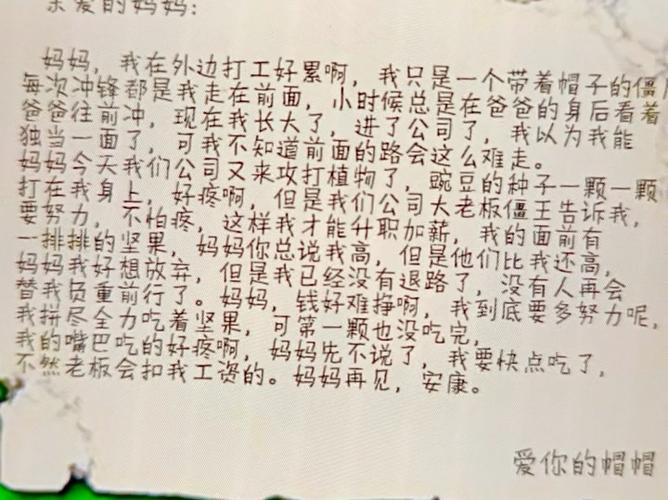 亲爱的妈妈:
妈妈，我在外边打工好累啊，我只是一个带着帽子的僵
每次冲锋都是我走在前面，小时候总是在爸爸的身后看着
爸爸往前冲，现在我长大了，进了公司了，我以为我能
独当一面了，可我不知道前面的路会这么难走。
妈妈今天我们公司又来攻打植物了，豌豆的种子一颗一颗
打在我身上，好疼啊，但是我们公司大老板僵王告诉我，
要努力，不怕疼，这样我才能升职加薪，我的面前有
一排排的坚果，妈妈你总说我高，但是他们比我还高，
妈妈我好想放弃，但是我已经没有退路了，没有人再会
替我负重前行了。妈妈，钱好难挣啊，我到底要多努力呢，
我拼尽全力吃着坚果，可第一颗也没吃完，
我的嘴巴吃的好疼啊，妈妈先不说了，我要快点吃了，
不然老板会扣我工资的。妈妈再见，安康。
爱你的帽帽